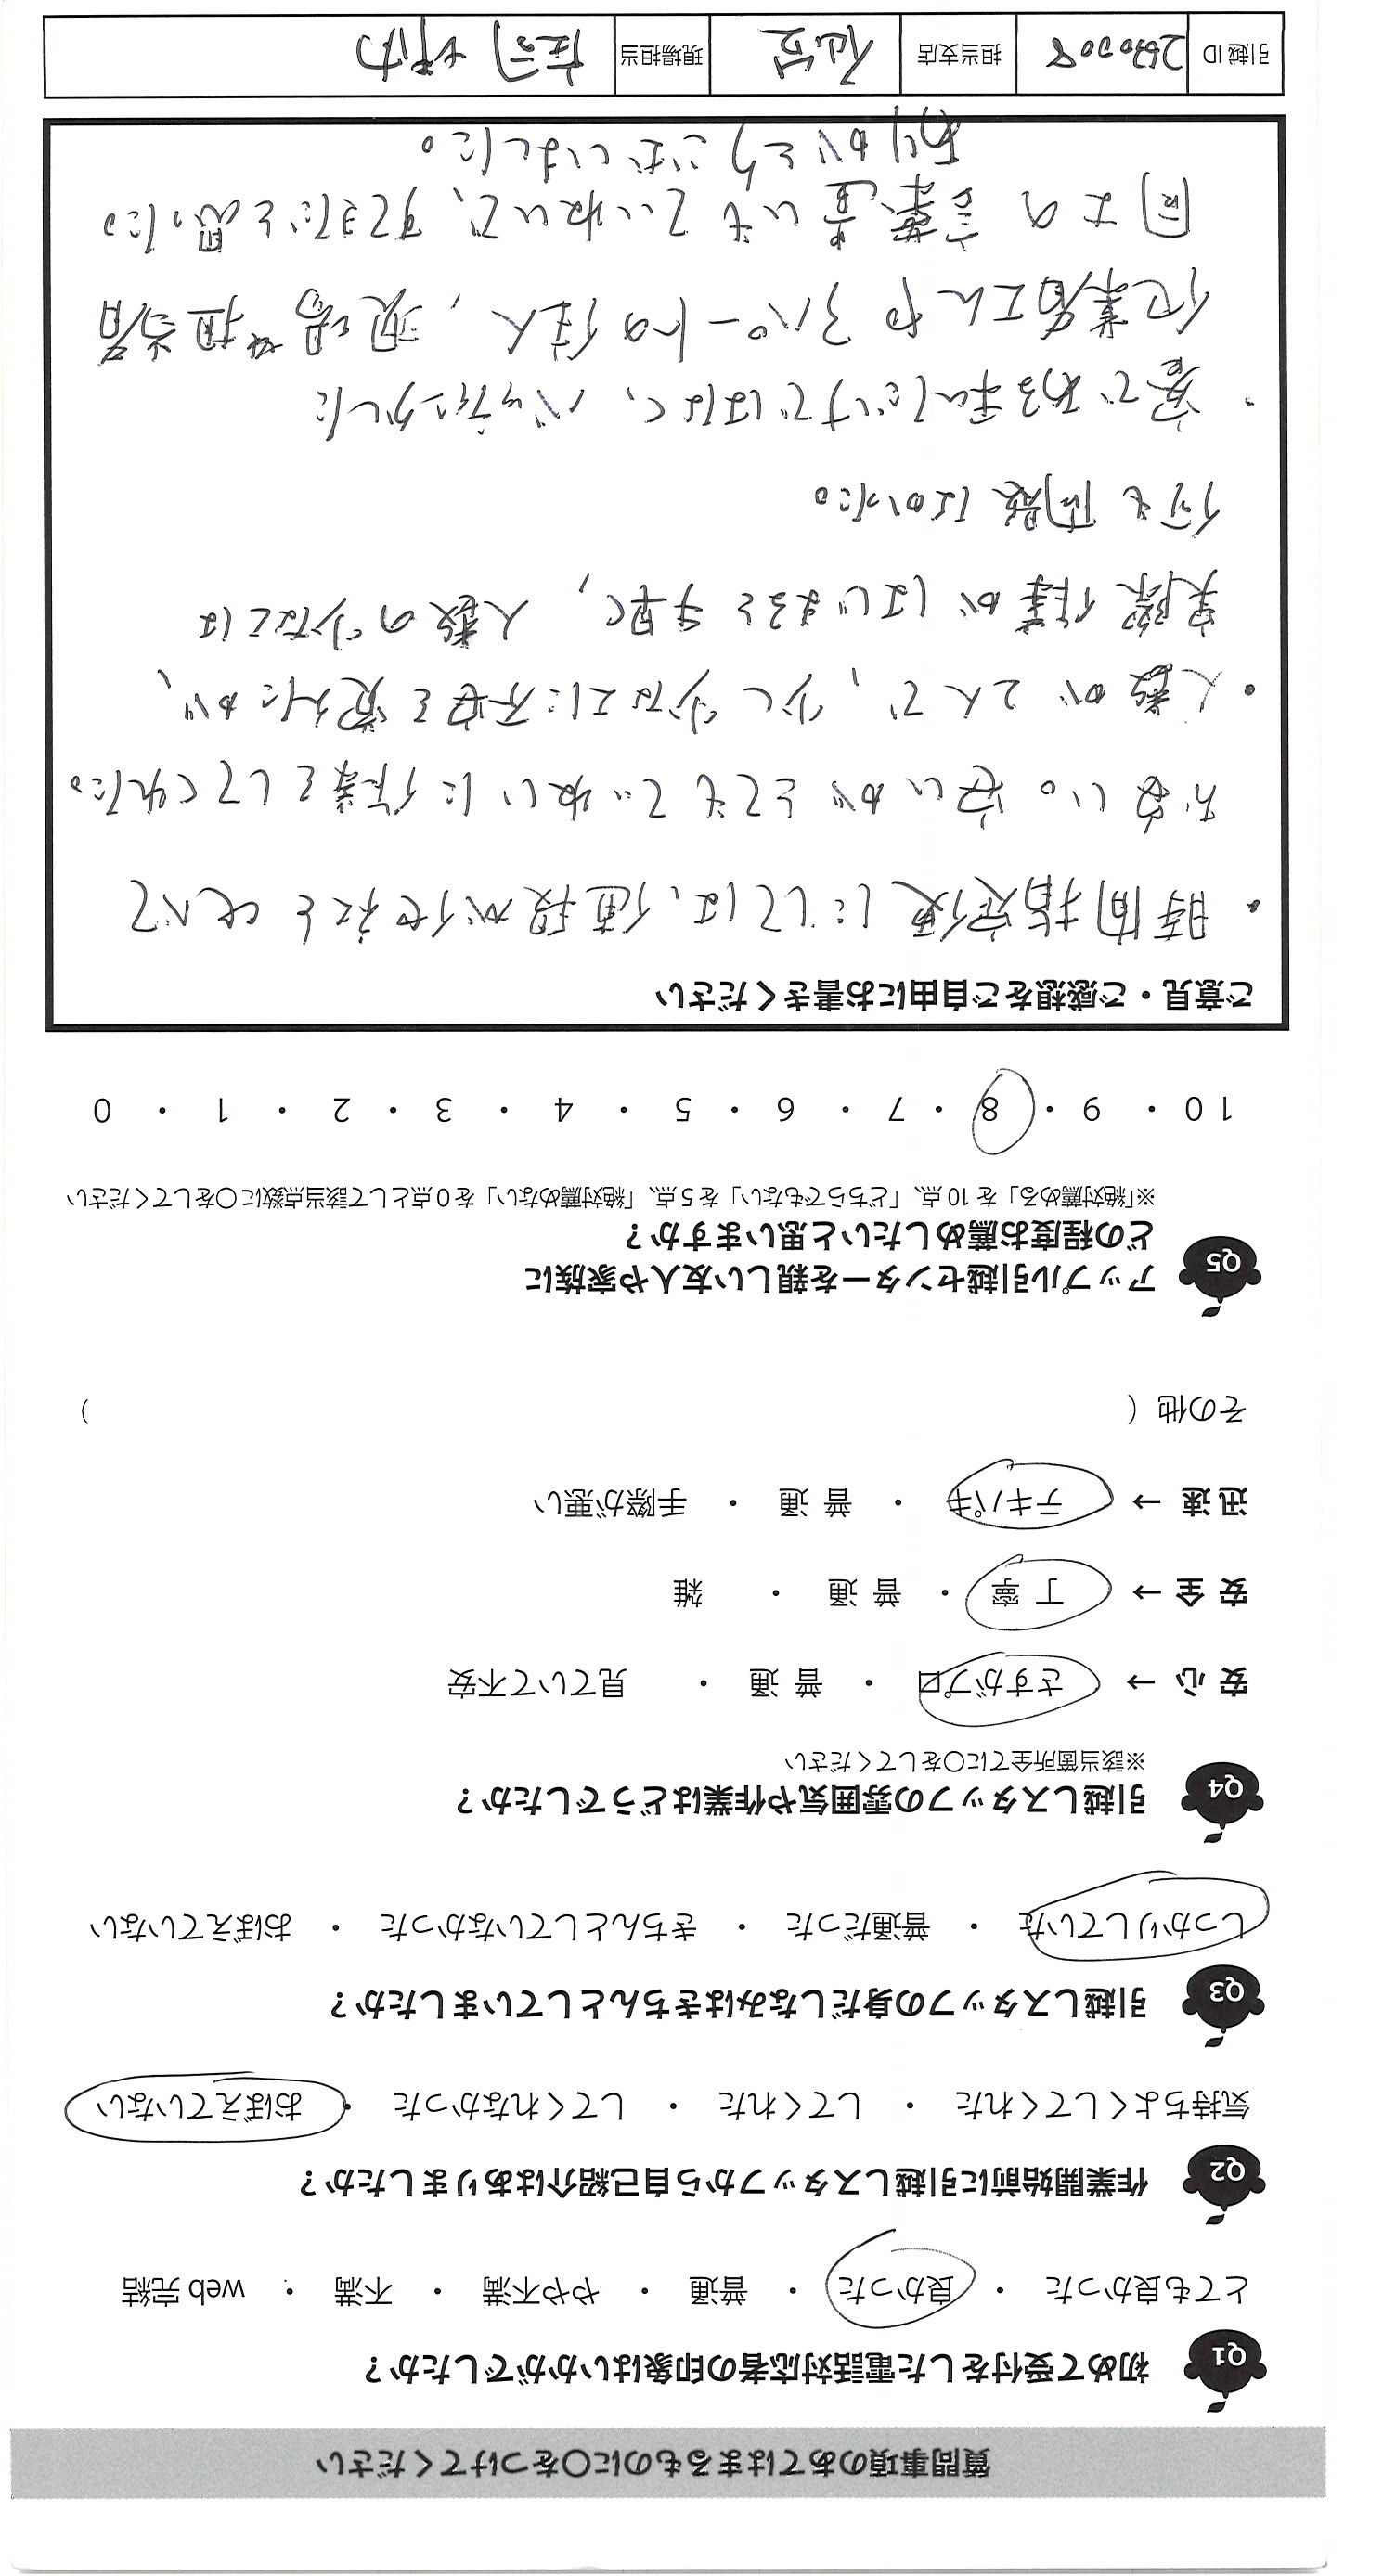 質問事項のあてはまるものに○をつけてください
Q1 初めて受付をした電話対応者の印象はいかがでしたか？
とても良かった ・ 良かった ・ 普通 ・ やや不満 ・ 不満 ・ web 完結
Q2 作業開始前に引越しスタッフから自己紹介はありましたか？
気持ちよくしてくれた ・ してくれた ・ してくれなかった ・ おぼえていない
Q3 引越しスタッフの身だしなみはきちんとしていましたか？
しっかりしていた ・ 普通だった ・ きちんとしていなかった ・ おぼえていない
Q4 引越しスタッフの雰囲気や作業はどうでしたか？
※該当箇所全てに○をしてください
安 心 → さすがプロ ・ 普 通 ・ 見ていて不安
安 全 → 丁 寧 ・ 普 通 ・ 雑
迅 速 → テキパキ ・ 普 通 ・ 手際が悪い
その他（ ）
Q5 アップル引越センターを親しい友人や家族に
どの程度お薦めしたいと思いますか？
※「絶対薦める」を 10 点、「どちらでもない」を 5 点、「絶対薦めない」を 0 点として該当点数に○をしてください
10 ・ 9 ・ 8 ・ 7 ・ 6 ・ 5 ・ 4 ・ 3 ・ 2 ・ 1 ・ 0
ご意見・ご感想をご自由にお書きください
・時間指定便にしては、値段が他社と比べて
安い。安いがとてもていねいに作業をしてくれた。
・人数が2人で、少し少なエに不安を覚えたが、
実際作業がはじまると手早く、人数の少なさは
何も問題なかった。
・客である私にだけではなく、バッティングした
他業者さんやアパートの住人、現場担当者
同士の言葉遣いもていねいで、すてきだと思った。
ありがとうございました。
引越 ID 担当支店 仙台 現場担当